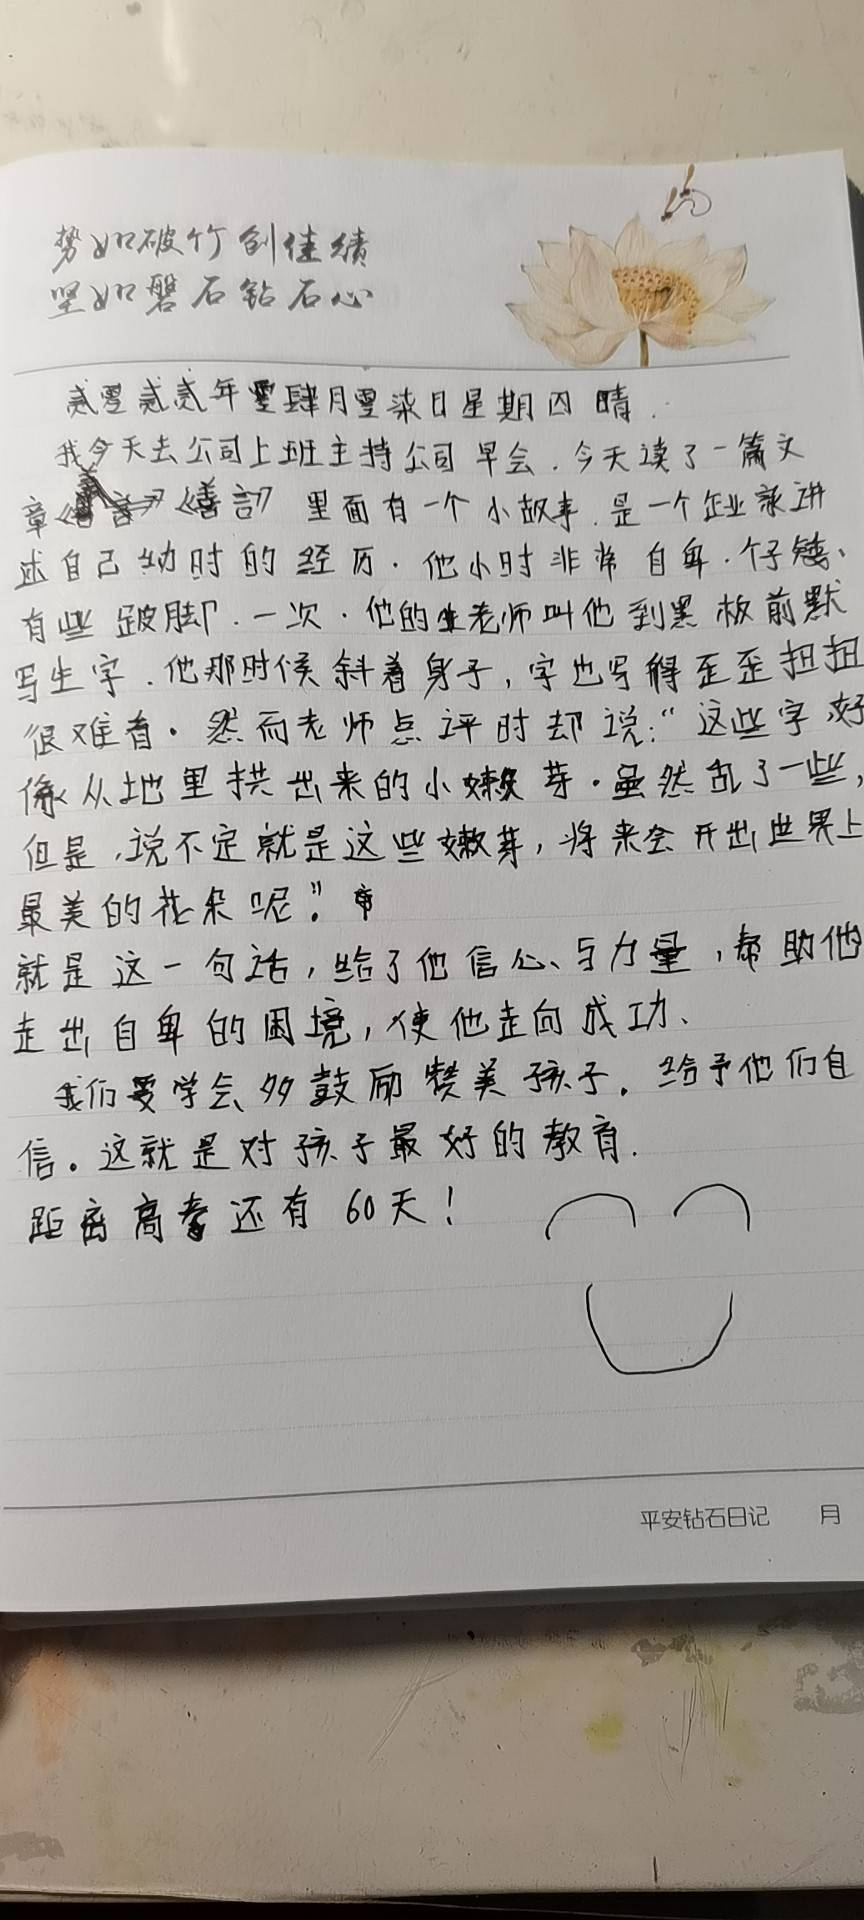 势如破竹创佳绩
坚如磐石钻石心
贰零贰贰年零肆月零柒日星期四 晴.
我今天去公司上班主持公司早会.今天读了一篇文
章《善言》里面有一个小故事.是一个企业家讲
述自己幼时的经历.他小时非常自卑.个子矮、
有些跛脚.一次.他的老师叫他到黑板前默
写生字.他那时候斜着身子,字也写得歪歪扭扭
很难看。然而老师点评时却说:“这些字好
像从地里拱出来的小嫩芽.虽然乱了一些,
但是,说不定就是这些嫩芽,将来会开出世界上
最美的花朵呢”。
就是这一句话,给了他信心、与力量,帮助他
走出自卑的困境,使他走向成功、
我们要学会多鼓励赞美孩子.给予他们自
信。这就是对孩子最好的教育.
距离高考还有60天!
平安钻石日记 月